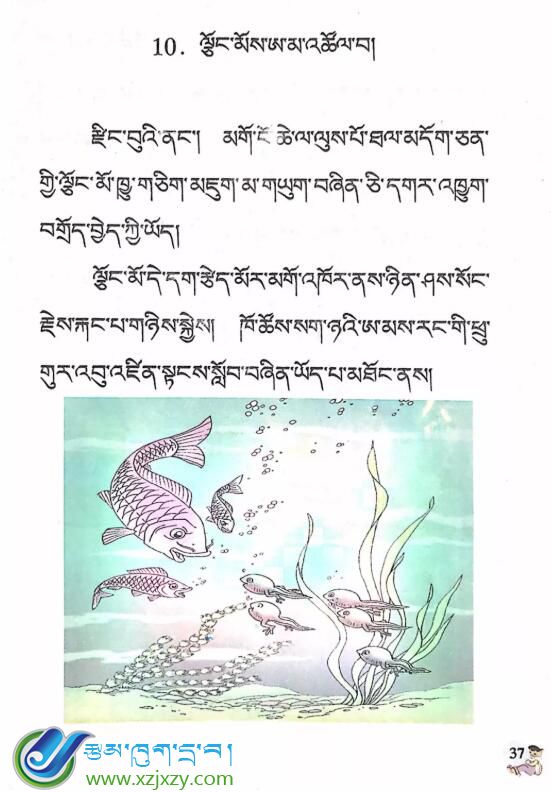 10. ལྕོང་མོས་ཨ་མ་འཚོལ་བ།
རྫིང་བུའི་ནང་། མགོ་ངོ་ཆེ་ལ་ལུས་པོ་ཐལ་མདོག་ཅན་
གྱི་ལྕོང་མོ་ཁྱུ་གཅིག་མཇུག་མ་གཡུག་བཞིན་ཅི་དགར་འཁྱུག་
བགྲོད་བྱེད་ཀྱི་ཡོད།
ལྕོང་མོ་དེ་དག་རྩེད་མོར་མགོ་འཁོར་ནས་ཉིན་ཤས་སོང་
རྗེས་རྐང་པ་གཉིས་སྐྱེས། ཁོ་ཚོས་སག་ཉའི་ཨ་མས་རང་གི་ཕྲུ་
གུར་འབུ་འཛིན་སྟངས་སློབ་བཞིན་ཡོད་པ་མཐོང་ནས།
རྩམ་ཁུག་དྲ་བ།
www.xzjxzy.com
37